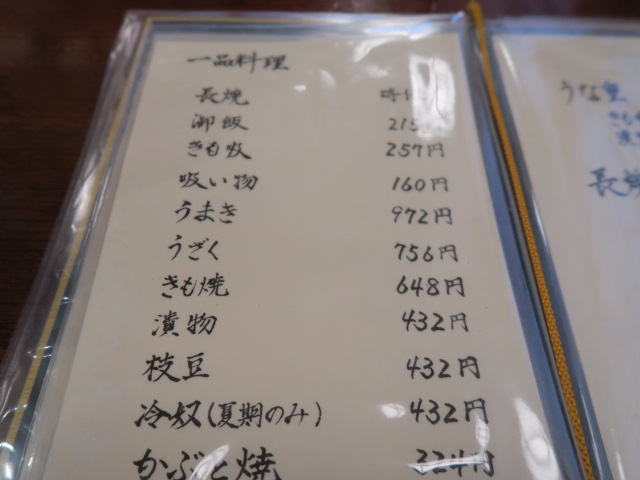 一品料理
長焼 時
御飯 215
きも吸 257円
吸い物 160円
うまき 972円
うざく 756円
きも焼 648円
漬物 432円
枝豆 432円
冷奴(夏期のみ) 432円
かぶと焼 324円
うな重
長焼